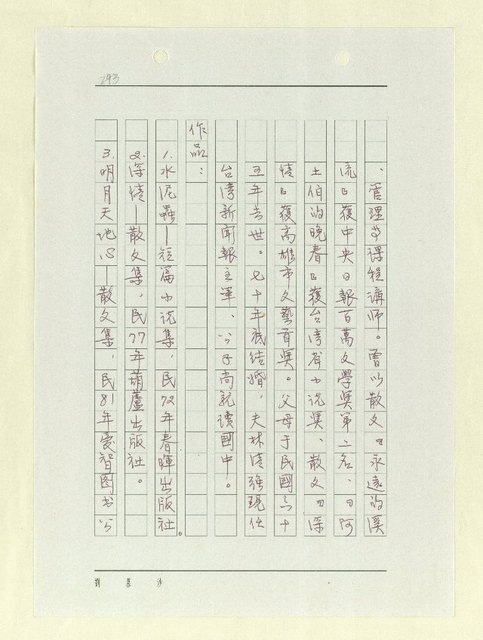 293
、管理学課程講師。曾以散文『永遠的溪
流』獲中央日報百萬文學獎第二名、『阿
土伯的晚春』獲台湾省小說獎、散文『深
情』獲高雄市文藝首獎。父母于民國六十
五年去世。七十年底結婚，夫林清強現任
台湾新聞報主筆、公子尚就讀國中。
作品：
1.水泥蟲—短篇小說集，民72年春暉出版社。
2.深情—散文集，民77年葫蘆出版社。
3.明月天地心—散文集，民81年愛智图书公
劉慕沙